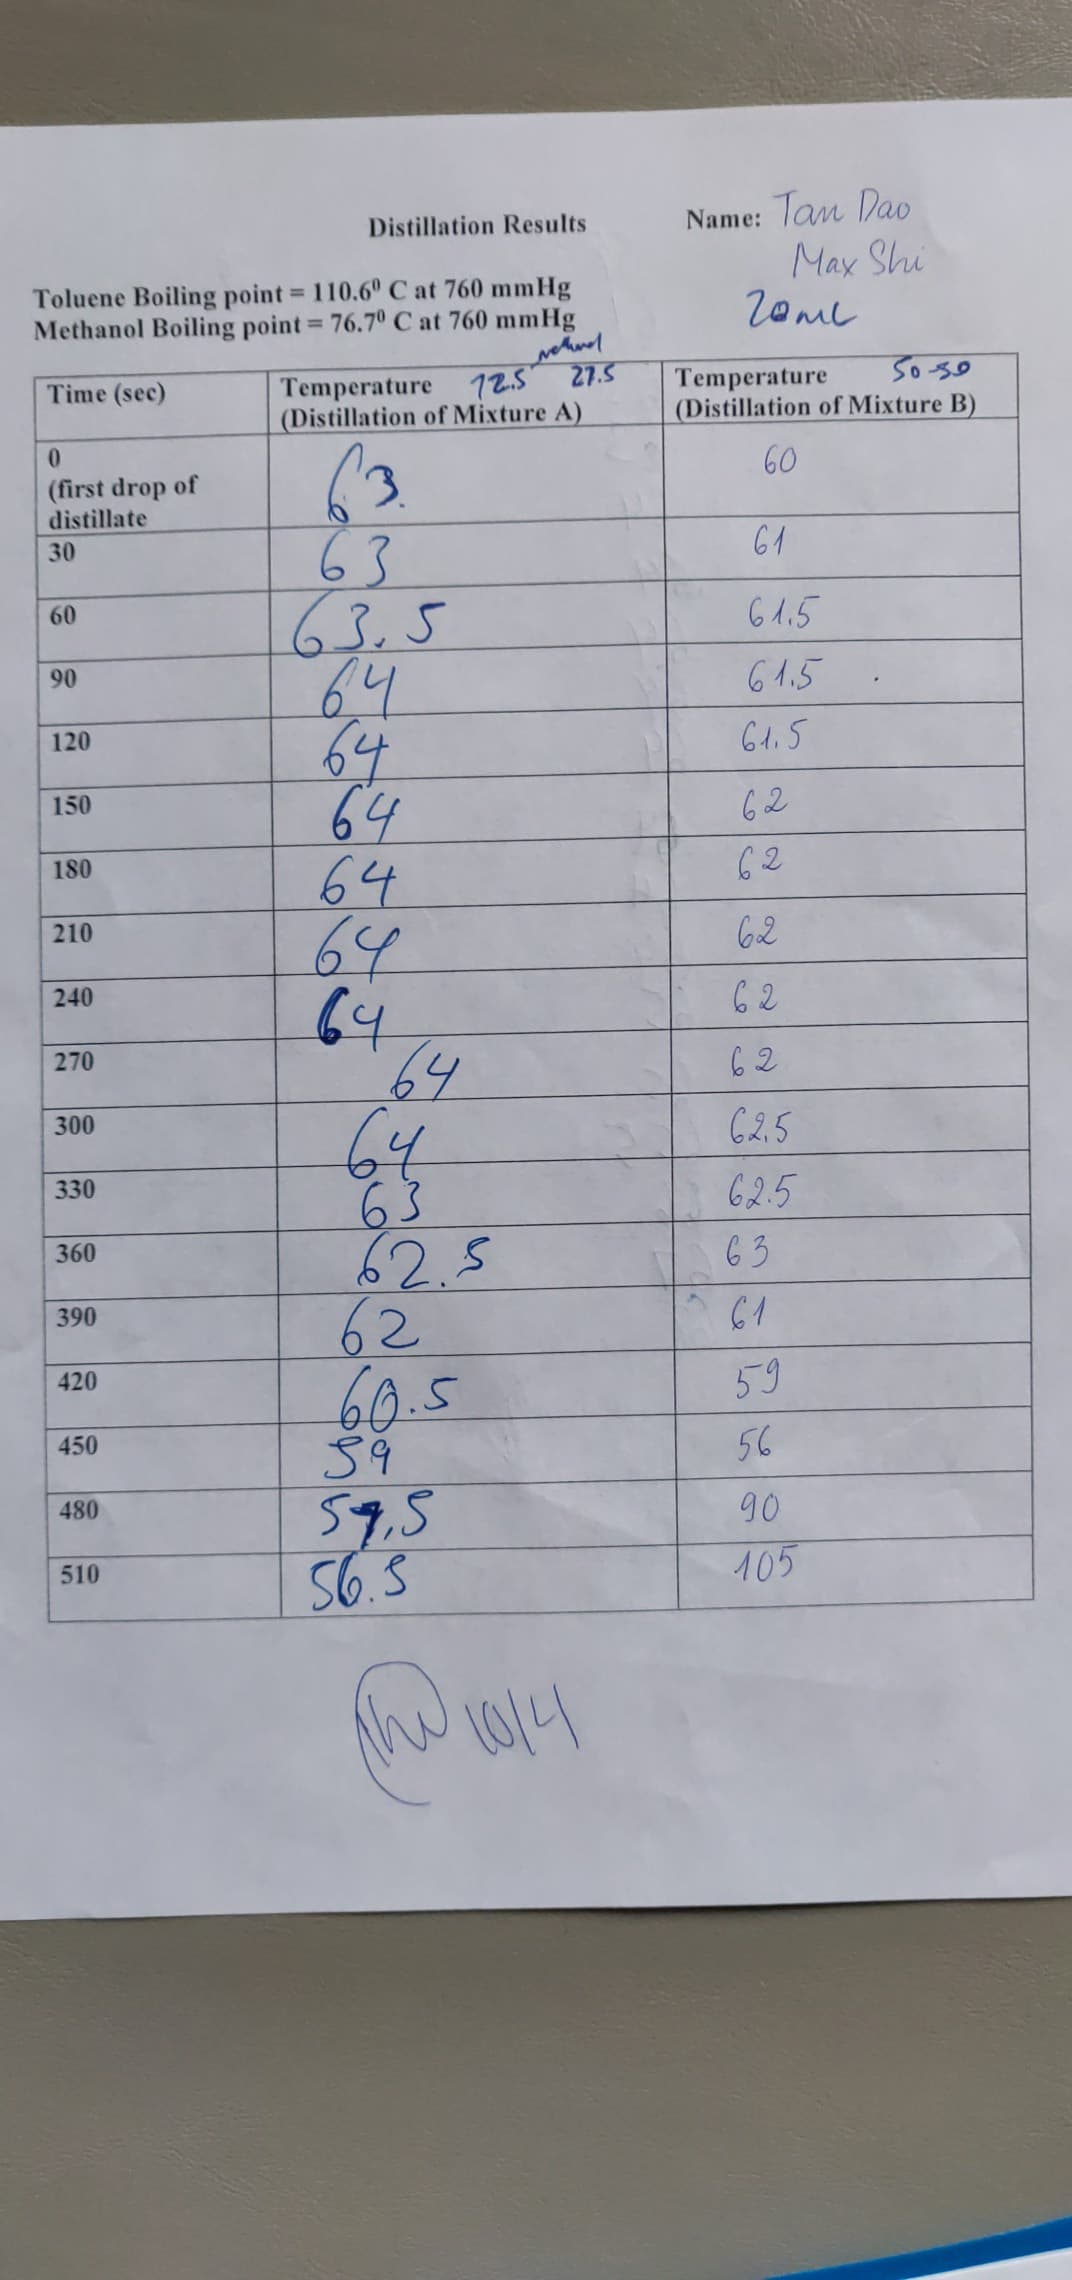 Distillation Results
Name: Tan Dao
Max Shi
Toluene Boiling point = 110.6⁰ C at 760 mmHg
20mL
Methanol Boiling point = 76.7⁰ C at 760 mmHg
methanol
Time (sec) Temperature 72.5 27.5 Temperature 50-50
(Distillation of Mixture A) (Distillation of Mixture B)
0 63. 60
(first drop of
distillate
30 63 61
60 63.5 61.5
90 64 61.5
120 64 61.5
150 64 62
180 64 62
210 64 62
240 64 62
270 64 62
300 64 62.5
330 63 62.5
360 62.5 63
390 62 61
420 60.5 59
450 59 56
480 57,5 90
510 56.5 105
10/4